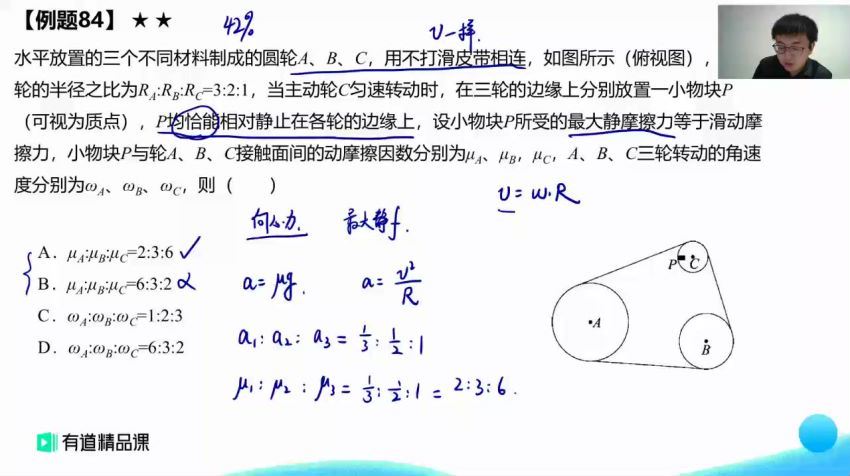 【例题84】★ ★ 42% v一样.
水平放置的三个不同材料制成的圆轮A、B、C，用不打滑皮带相连，如图所示（俯视图），
轮的半径之比为RA:RB:RC=3:2:1，当主动轮C匀速转动时，在三轮的边缘上分别放置一小物块P
（可视为质点），P均恰能相对静止在各轮的边缘上，设小物块P所受的最大静摩擦力等于滑动摩
擦力，小物块P与轮A、B、C接触面间的动摩擦因数分别为μA、μB，μC，A、B、C三轮转动的角速
度分别为ωA、ωB、ωC，则（ ）
v=w.R
向心力. 最大静f.
A．μA:μB:μC=2:3:6 ✓
B．μA:μB:μC=6:3:2
a=μg. a=v²/R
C．ωA:ωB:ωC=1:2:3
a₁:a₂:a₃=1/3:1/2:1
D．ωA:ωB:ωC=6:3:2
μ₁:μ₂:μ₃=1/3:1/2:1=2:3:6.
P C
A
B
有道精品课